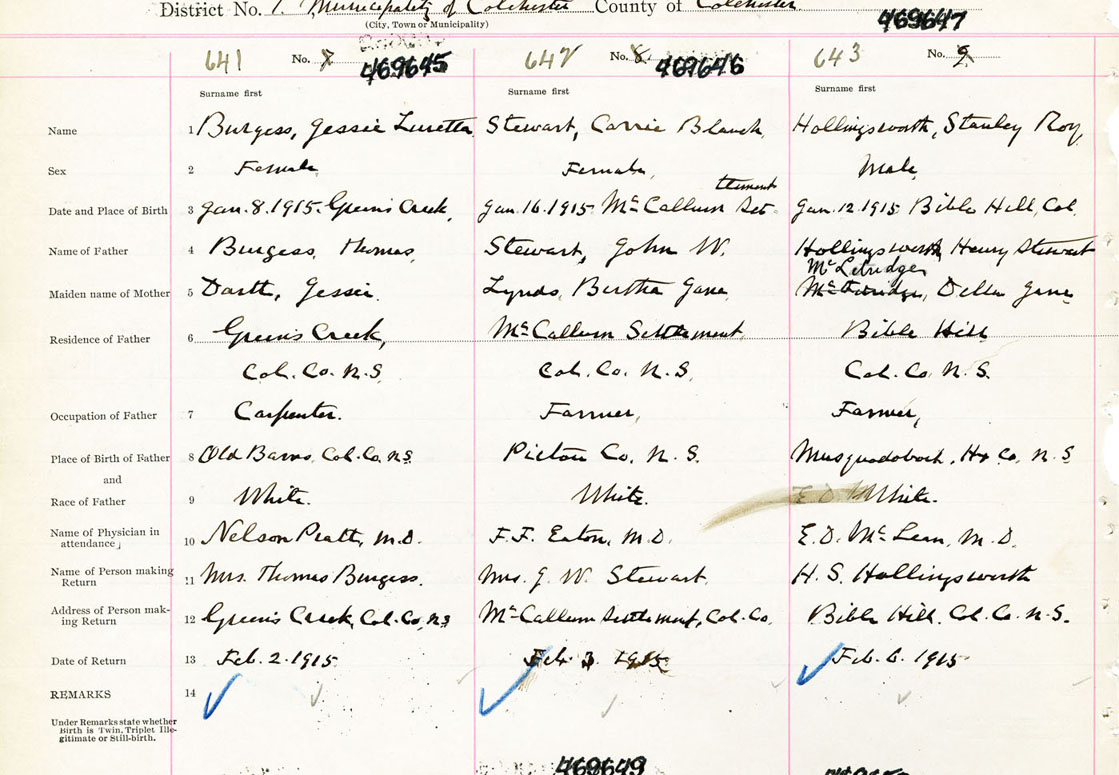 District No. 1. Municipality of Colchester County of Colchester
(City, Town or Municipality)
469647
641 No. 7 469645 642 No. 8. 469646 643 No. 9
Surname first Surname first Surname first
Name 1 Burgess, Jessie Luretta Stewart, Carrie Blanch, Hollingsworth, Stanley Roy,
Sex 2 Female Female, Male,
tlement
Date and Place of Birth 3 Jan. 8. 1915. Greens Creek, Jan. 16. 1915 McCallum Set- Jan. 12. 1915 Bible Hill, Col.
Name of Father 4 Burgess, Thomas, Stewart, John W. Hollingsworth, Henry Stewart
Maiden name of Mother 5 Dartt, Jessie. Lynds, Bertha Jane, Della Jane
Residence of Father 6 Greens Creek, McCallum Settlement, Bible Hill
Col. Co. N. S. Col. Co. N. S. Col. Co. N. S.
Occupation of Father 7 Carpenter. Farmer, Farmer,
Place of Birth of Father 8 Old Barns, Col. Co. N.S. Pictou Co, N. S. Musquodoboit, Hx Co, N. S
and
Race of Father 9 White. White. White.
Name of Physician in
attendance 10 Nelson Pratt, M.D. F. F. Eaton, M.D. E. D. McLean, M. D.
Name of Person making
Return 11 Mrs. Thomas Burgess. Mrs. J. W. Stewart. H. S. Hollingsworth
Address of Person mak-
ing Return 12 Greens Creek, Col. Co, N.S McCallum Settlement, Col. Co, Bible Hill, Col. Co. N. S.
Date of Return 13 Feb. 2. 1915. Feb. 3 1915 Feb. 6. 1915
REMARKS 14
Under Remarks state whether
Birth is Twin, Triplet Ille-
gitimate or Still-birth.
469649